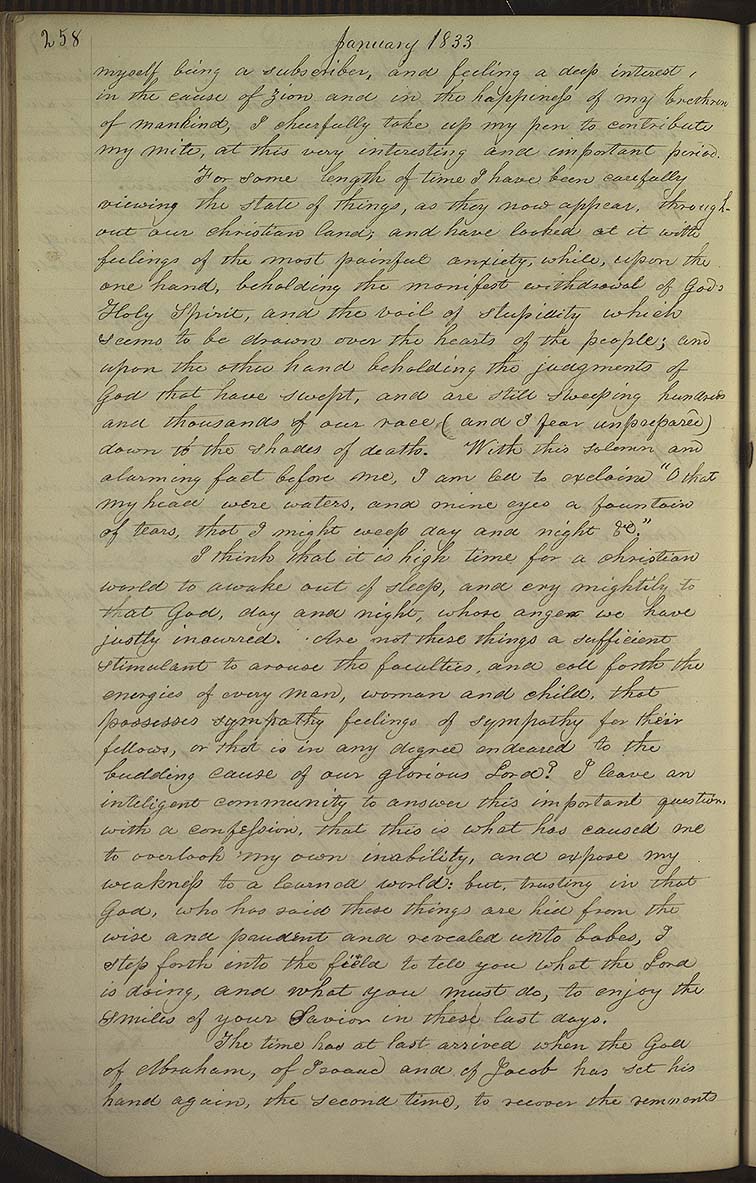 258 January 1833
myself being a subscriber, and feeling a deep interest,
in the cause of Zion and in the happiness of my brethren
of mankind, I cheerfully take up my pen to contribute
my mite, at this very interesting and important period.
For some length of time I have been carefully
viewing the state of things, as they now appear, through-
out our christian land; and have looked at it with
feelings of the most painful anxiety, while, upon the
one hand, beholding the manifest withdrawal of God's
Holy Spirit, and the vail of stupidity which
seems to be drawn over the hearts of the people; and
upon the other hand beholding the judgments of
God that have swept, and are still sweeping hundreds
and thousands of our race, (and I fear unprepared)
down to the shades of death. With this solemn and
alarming fact before me, I am led to exclaim "O that
my head were waters, and mine eyes a fountain
of tears, that I might weep day and night &c."
I think that it is high time for a christian
world to awake out of sleep, and cry mightily to
that God, day and night, whose anger we have
justly incurred. Are not these things a sufficient
stimulant to arouse the faculties, and call forth the
energies of every man, woman and child, that
possesses sympathy feelings of sympathy for their
fellows, or that is in any degree endeared to the
budding cause of our glorious Lord? I leave an
inteligent community to answer this important question,
with a confession, that this is what has caused me
to overlook my own inability, and expose my
weakness to a learned world: but, trusting in that
God, who has said these things are hid from the
wise and prudent and revealed unto babes, I
step forth into the field to tell you what the Lord
is doing, and what you must do, to enjoy the
smiles of your Savior in these last days.
The time has at last arrived when the God
of Abraham, of Isaac and of Jacob has set his
hand again, the second time, to recover the remnants